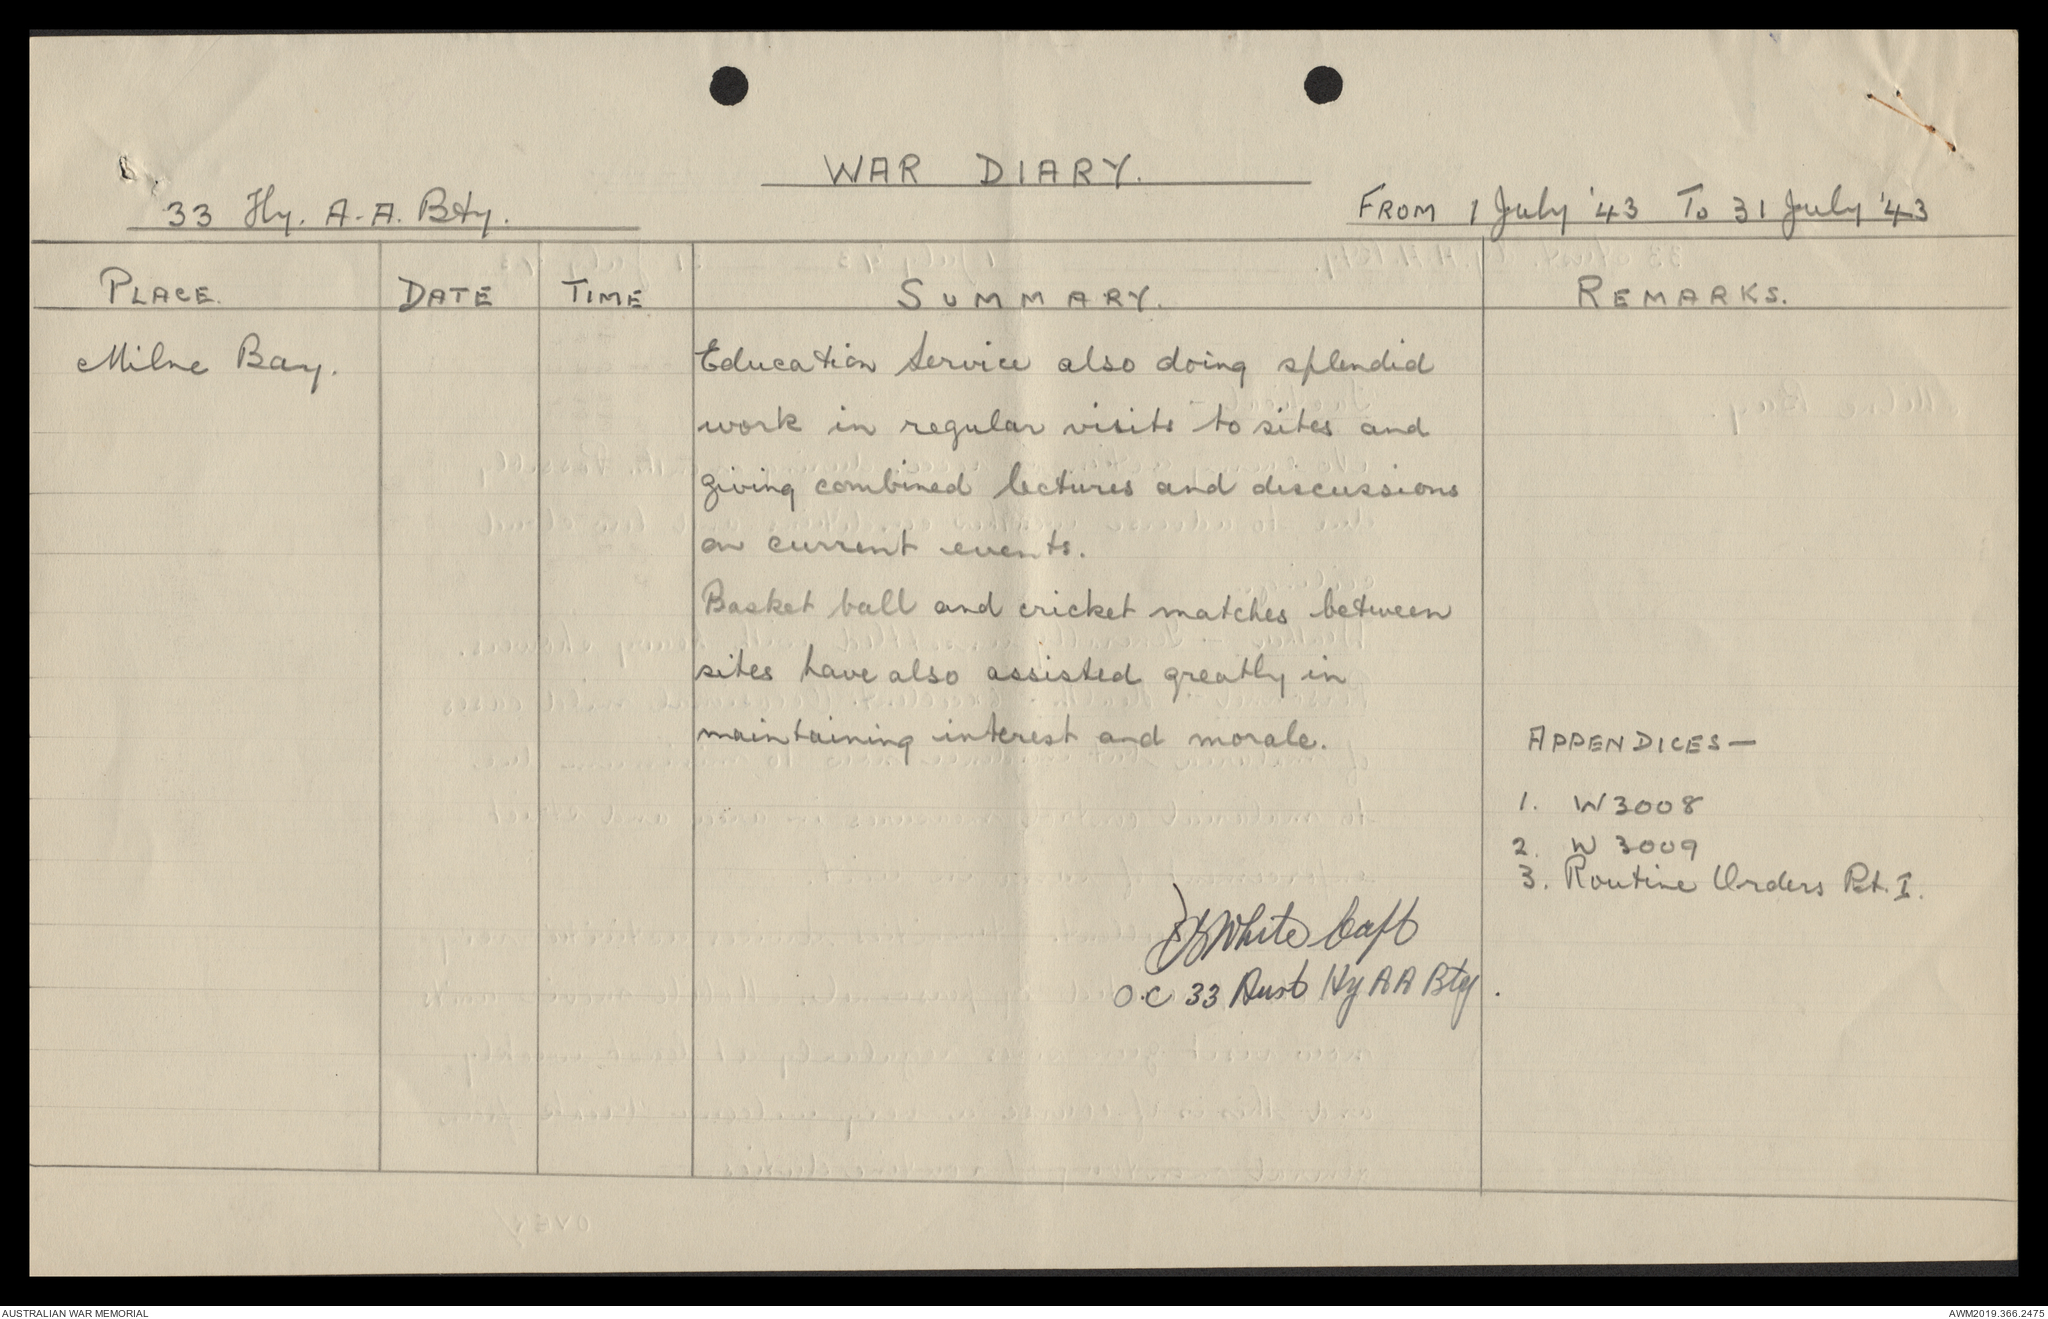 WAR DIARY.
33 Hy. A.A. Bty.
FROM 1 July '43 To 31 July '43
PLACE. DATE TIME SUMMARY. REMARKS.
Milne Bay. Education Service also doing splendid
work in regular visits to sites and
giving combined lectures and discussions
on current events.
Basket ball and cricket matches between
sites have also assisted greatly in
maintaining interest and morale.
APPENDICES—
1. W3008
2. W 3009
3. Routine Orders Pt. I.
White Capt
O.C 33 Aust Hy AA Bty.
AUSTRALIAN WAR MEMORIAL
AWM2019.366.2475